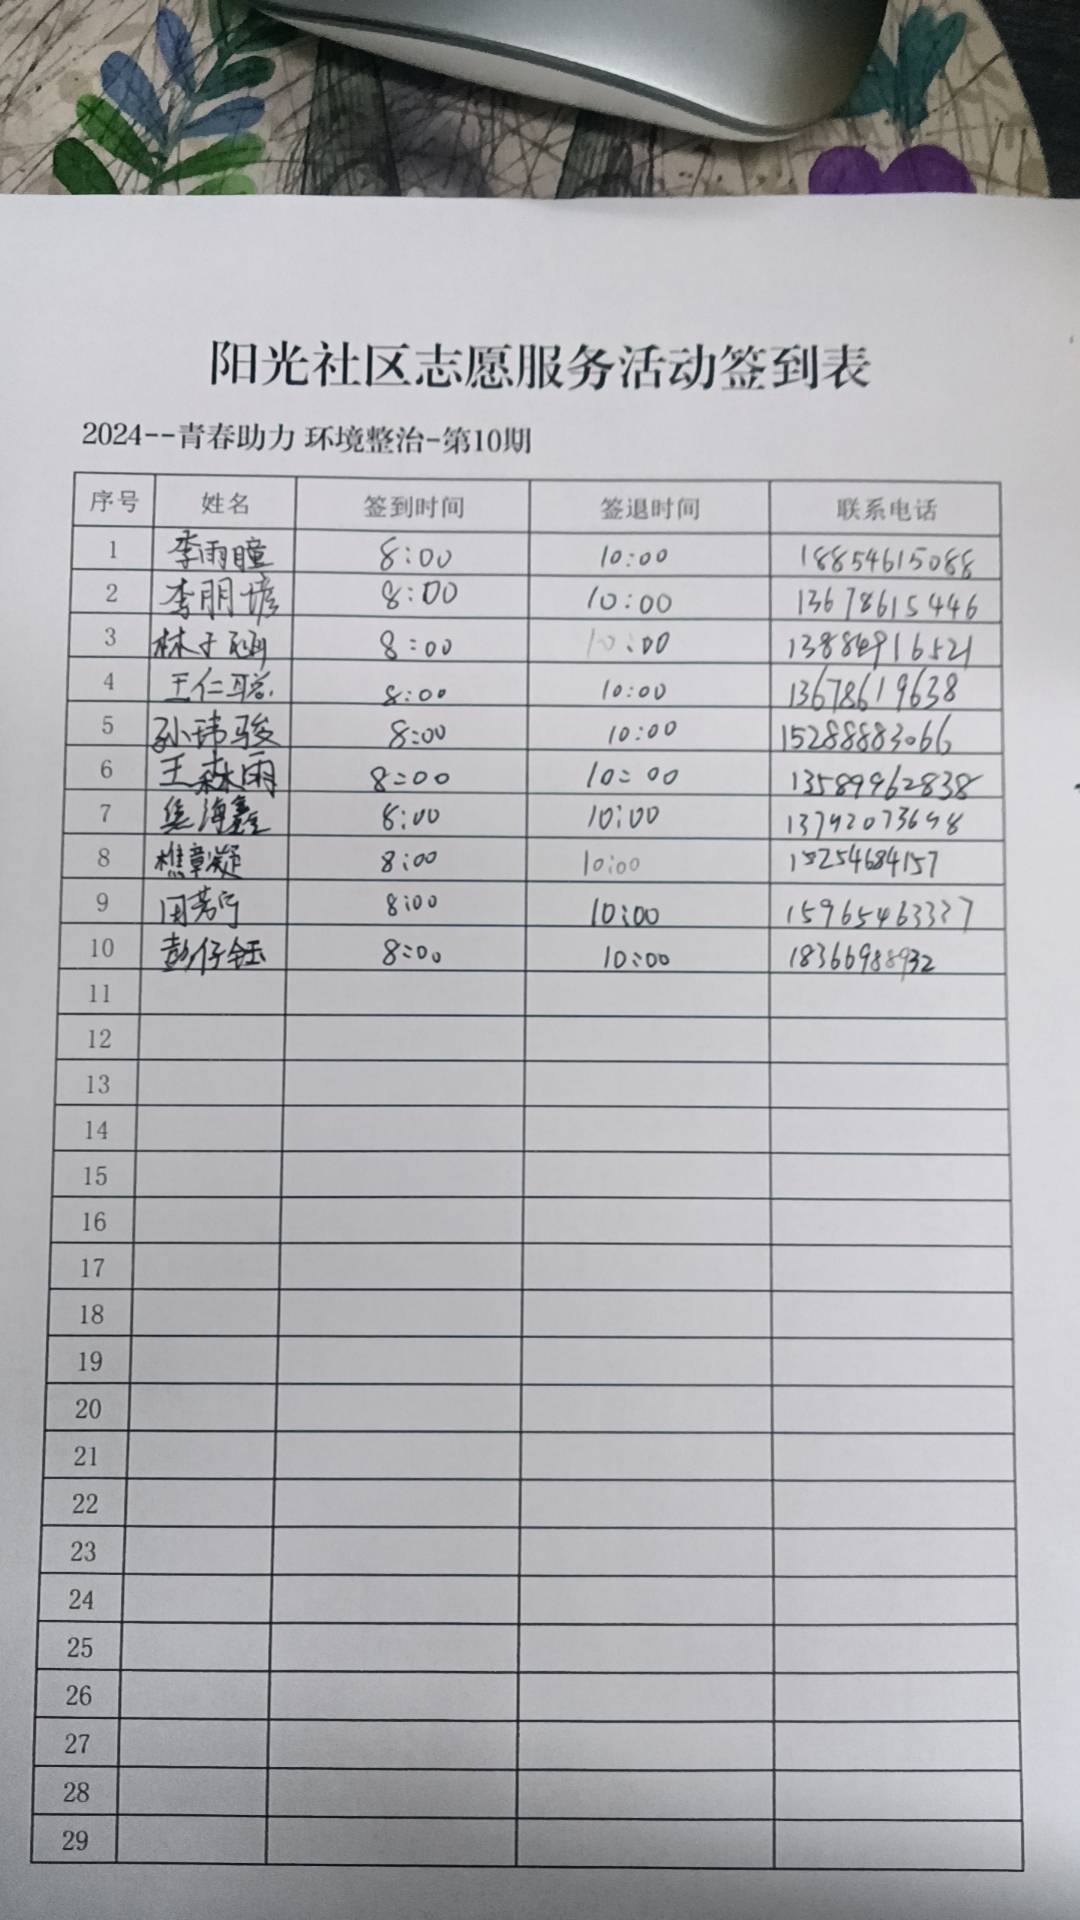 阳光社区志愿服务活动签到表
2024--青春助力 环境整治-第10期
序号 姓名 签到时间 签退时间 联系电话
1 李雨瞳 8:00 10:00 18854615088
2 李朋 8:00 10:00 13678615446
3 林子涵 8:00 10:00 13884916521
4 王仁聪 8:00 10:00 13678619638
5 孙玮骏 8:00 10:00 15288883066
6 王森雨 8:00 10:00 13589962838
7 海鑫 8:00 10:00 13792073698
8 樵章凝 8:00 10:00 15254684157
9 田芳宁 8:00 10:00 15965463327
10 彭仔钰 8:00 10:00 18366988932
11
12
13
14
15
16
17
18
19
20
21
22
23
24
25
26
27
28
29